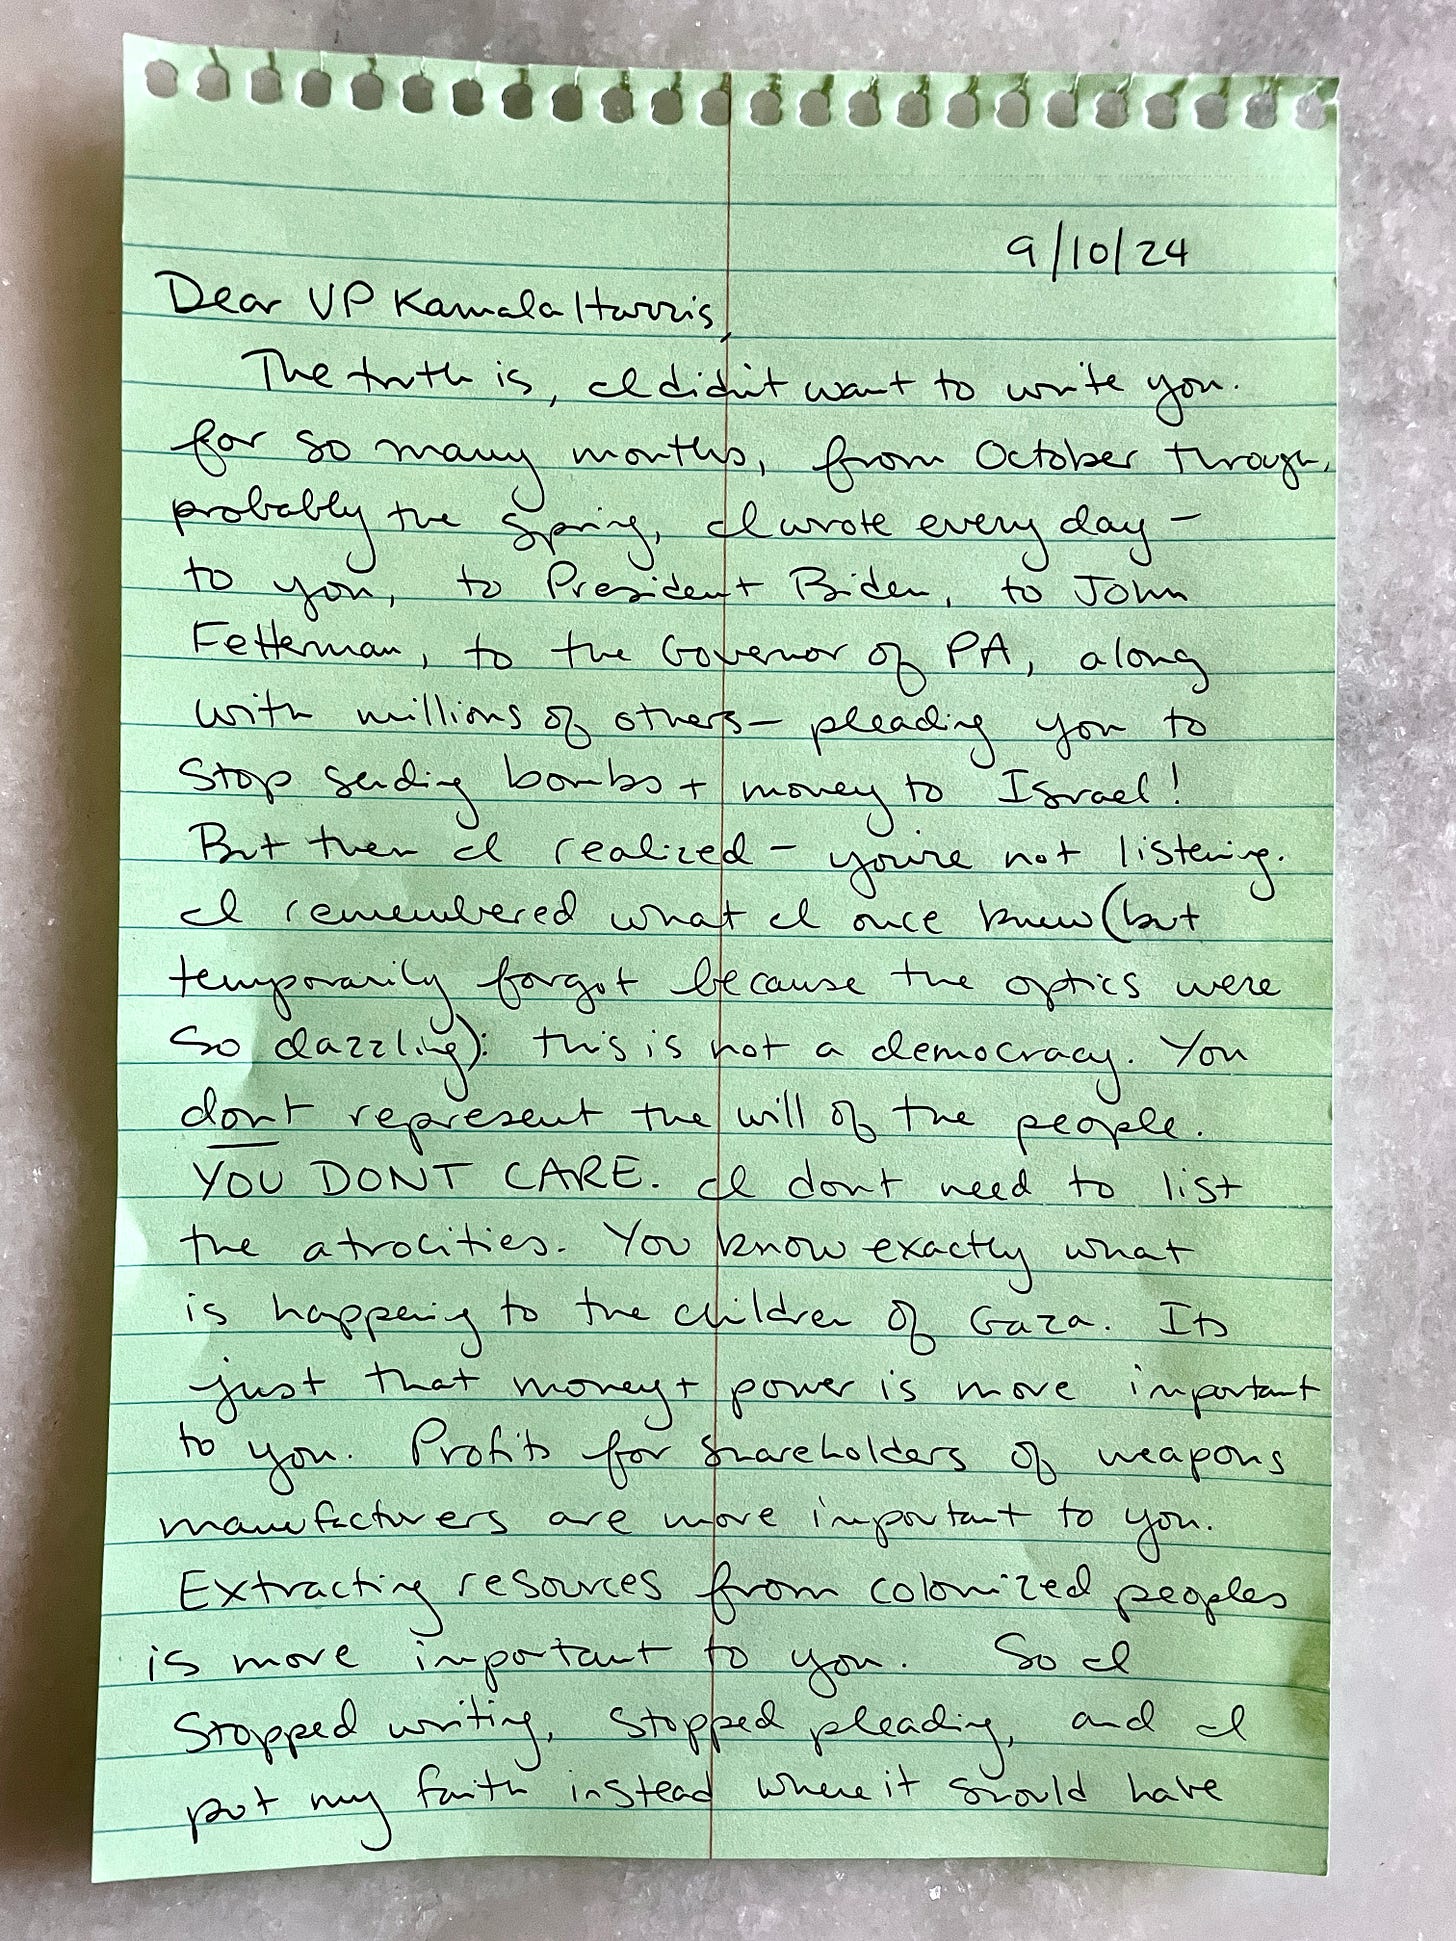 9/10/24
Dear VP Kamala Harris,
The truth is, I didn't want to write you.
for so many months, from October through,
probably the Spring, I wrote every day -
to you, to President Biden, to John
Fetterman, to the Governor of PA, along
with millions of others - pleading you to
stop sending bombs + money to Israel!
But then I realized - you're not listening.
I remembered what I once knew (but
temporarily forgot because the optics were
so dazzling): this is not a democracy. You
dont represent the will of the people.
YOU DONT CARE. I dont need to list
the atrocities. You know exactly what
is happening to the children of Gaza. Its
just that money + power is more important
to you. Profits for shareholders of weapons
manufacturers are more important to you.
Extracting resources from colonized peoples
is more important to you. So I
stopped writing, stopped pleading, and I
put my faith instead where it should have